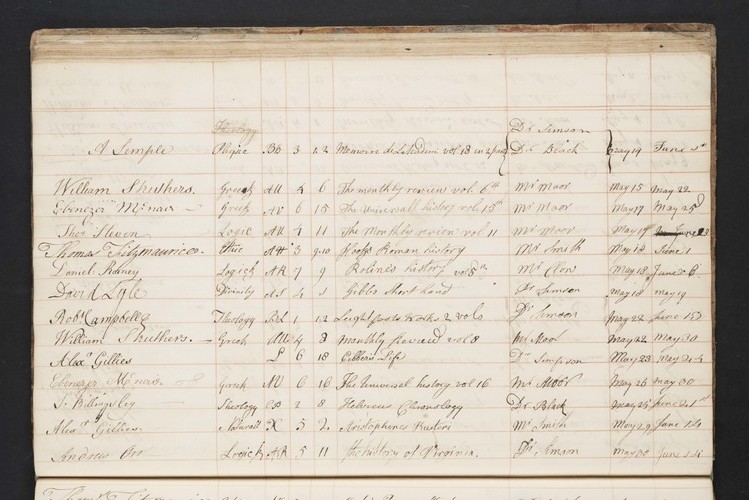 Theology Dr. Simson
A Semple Phyic BO 3 1,2 vol 18 in 2 parts Dr. Black May 19 June 1st
William Struthers. Greek AU 4 6 The monthly review vol. 6th Mr Moor May 15 May 22
Ebenezer McNair Greek AU 6 15 The Universall history vol. 15th Mr Moor May 17 May 25
Thos Steven Logic AU 4 11 The Monthly review vol 11 Mr Moor May 17
Thomas Fitzmaurice Ethic 3 9.10 Hooks Roman history Mr Smith May 18 June 1
Daniel Rainey Logick AR 7 9 Rolines history vol 5th Mr Clow May 18 June 6
David Lyle Divinity 4 Gibbs Short hand Dr Simson May 18 May 19
Robt Campbell Theology BL 1 12 2 vols Dr Simson May 22 June 15
William Struthers. Greek AU 4 8 monthly Review vol 8 Mr Moor May 22 May 30
Alexr Gillies L 6 18 Life Dr Simpson May 23 May 24
Ebenezer McNair Greek AU 6 16 The Universal history vol 16 Mr Moor May 25 May 30
J. Billingsley Theology 2 8 Hebrew Chronology Dr Black May 25 June 21st
Alexr Gillies X 3 2 Aristophenes Kusteri Mr Smith May 29 June 14
Andrew Orr Logick AR 5 11 the history of Virginia. Dr Simson May 30 June 14